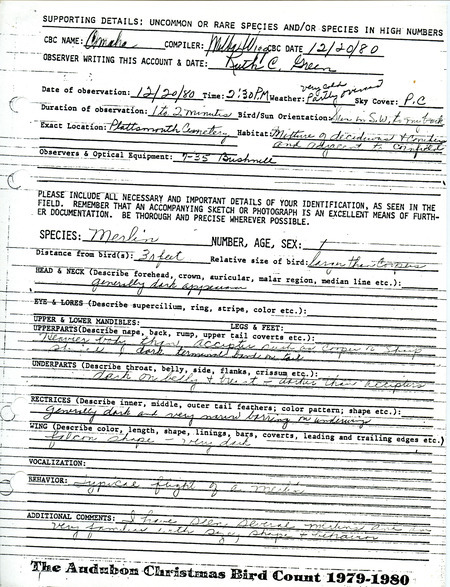 SUPPORTING DETAILS: UNCOMMON OR RARE SPECIES AND/OR SPECIES IN HIGH NUMBERS
CBC NAME: Omaha COMPILER: CBC DATE 12/20/80
OBSERVER WRITING THIS ACCOUNT & DATE: Ruth C. Green
very cold
Date of observation: 12/20/80 Time: 2:30PM Weather: Partly overcast Sky Cover: P.C
Duration of observation: 1 to 2 minutes Bird/Sun Orientation: Sun in S.W. to my back
Exact Location: Plattsmouth Cemetery Habitat: Mixture of deciduous + conifers
and adjacent to cornfield
Observers & Optical Equipment: 7-35 Bushnell
PLEASE INCLUDE ALL NECESSARY AND IMPORTANT DETAILS OF YOUR IDENTIFICATION, AS SEEN IN THE
FIELD. REMEMBER THAT AN ACCOMPANYING SKETCH OR PHOTOGRAPH IS AN EXCELLENT MEANS OF FURTH-
ER DOCUMENTATION. BE THOROUGH AND PRECISE WHEREVER POSSIBLE.
SPECIES: Merlin NUMBER, AGE, SEX: 1
Distance from bird(s): 30 feet Relative size of bird: larger than
HEAD & NECK (Describe forehead, crown, auricular, malar region, median line etc.):
generally dark
EYE & LORES (Describe supercilium, ring, stripe, color etc.):
UPPER & LOWER MANDIBLES: LEGS & FEET:
UPPERPARTS(Describe nape, back, rump, upper tail coverts etc.):
Heavier body than accipiter such as Cooper's + Sharp
dark terminal band on tail
UNDERPARTS (Describe throat, belly, side, flanks, crissum etc.):
dark on belly + breast - darker than accipiters
RECTRICES (Describe inner, middle, outer tail feathers; color pattern; shape etc.):
Generally dark and very narrow barring on underwing
WING (Describe color, length, shape, linings, bars, coverts, leading and trailing edges etc.)
falcon shape - very dark
VOCALIZATION:
BEHAVIOR: typical flight of a merlin
ADDITIONAL COMMENTS: I have seen several merlins
very familiar with size, shape + behavior
The Audubon Christmas Bird Count 1979-1980